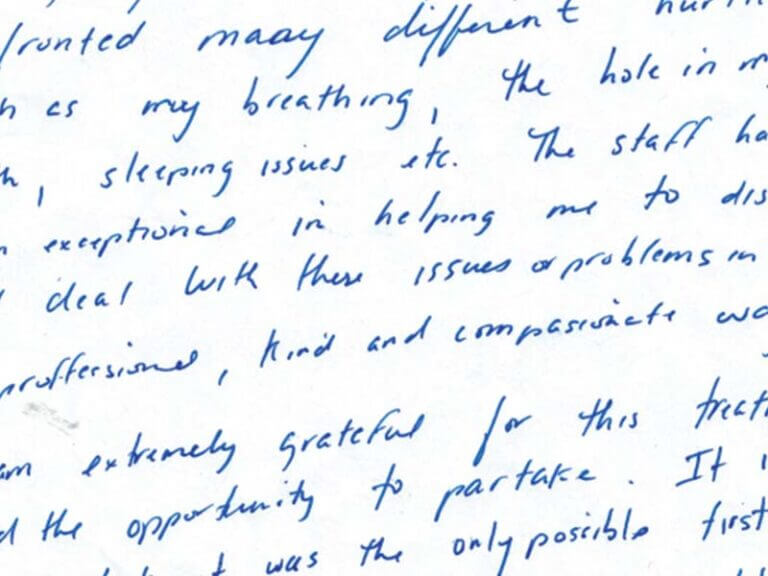 fronted maay different
as my breathing, the hole in
, sleeping issues etc. The staff ha
exceptional in helping me to dis
deal with these issues or problems in
proffersional, kind and compasionate wa
am extremely grateful for this treat
d the opportunity to partake. It i
was the only possible first